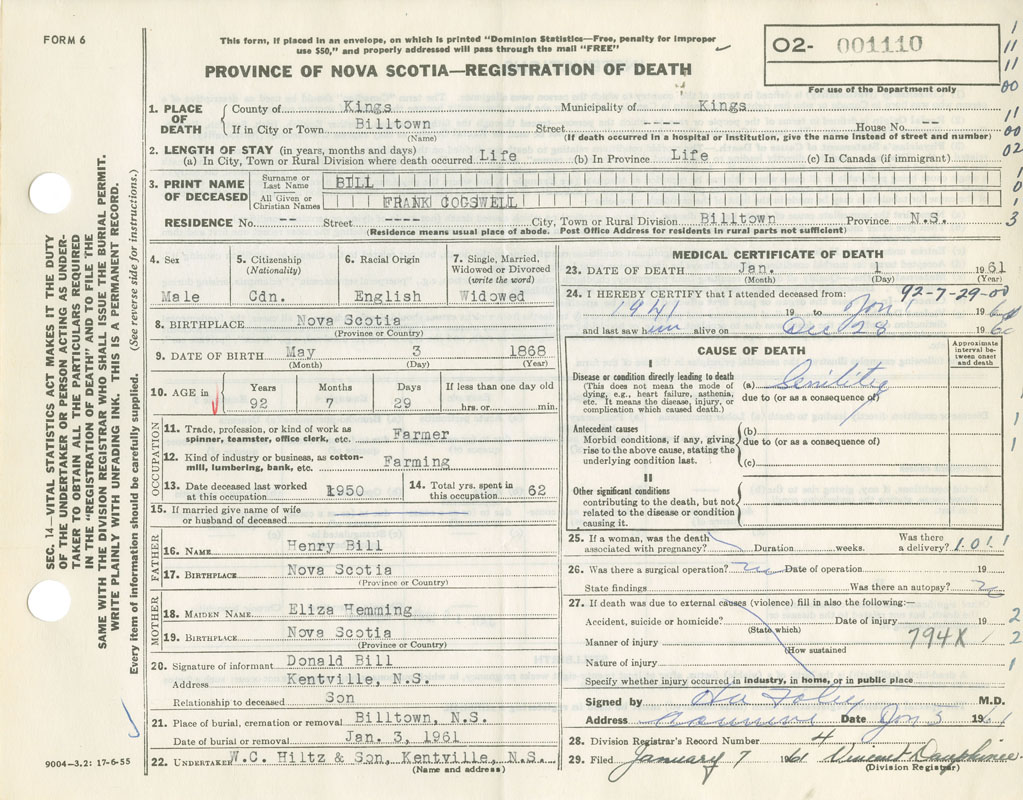 FORM 6
This form, if placed in an envelope, on which is printed "Dominion Statistics—Free, penalty for improper
use $50," and properly addressed will pass through the mail "FREE"
O2- 001110
For use of the Department only
PROVINCE OF NOVA SCOTIA—REGISTRATION OF DEATH
1. PLACE OF DEATH County of Kings Municipality of Kings
If in City or Town Billtown Street ---- House No. --
(Name) (If death occurred in a hospital or institution, give the name instead of street and number)
2. LENGTH OF STAY (in years, months and days)
(a) In City, Town or Rural Division where death occurred Life (b) In Province Life (c) In Canada (if immigrant)
3. PRINT NAME OF DECEASED Surname or Last Name BILL
All Given or Christian Names FRANK COGSWELL
RESIDENCE No. -- Street ---- City, Town or Rural Division Billtown Province N.S.
(Residence means usual place of abode. Post Office Address for residents in rural parts not sufficient)
4. Sex Male
5. Citizenship (Nationality) Cdn.
6. Racial Origin English
7. Single, Married, Widowed or Divorced (write the word) Widowed
8. BIRTHPLACE Nova Scotia
(Province or Country)
9. DATE OF BIRTH May 3 1868
(Month) (Day) (Year)
10. AGE in Years 92 Months 7 Days 29 If less than one day old hrs. or min.
OCCUPATION
11. Trade, profession, or kind of work as spinner, teamster, office clerk, etc. Farmer
12. Kind of industry or business, as cotton-mill, lumbering, bank, etc. Farming
13. Date deceased last worked at this occupation 1950
14. Total yrs. spent in this occupation 62
15. If married give name of wife or husband of deceased
FATHER
16. NAME Henry Bill
17. BIRTHPLACE Nova Scotia
(Province or Country)
MOTHER
18. MAIDEN NAME Eliza Hemming
19. BIRTHPLACE Nova Scotia
(Province or Country)
20. Signature of informant Donald Bill
Address Kentville, N.S.
Relationship to deceased Son
21. Place of burial, cremation or removal Billtown, N.S.
Date of burial or removal Jan. 3, 1961
22. UNDERTAKER W.C. Hiltz & Son, Kentville, N.S.
(Name and address)
MEDICAL CERTIFICATE OF DEATH
23. DATE OF DEATH Jan. 1 1961
(Month) (Day) (Year)
92-7-29-00
24. I HEREBY CERTIFY that I attended deceased from:
1941 19 to Jan 196
and last saw him alive on Dec 28 1960
CAUSE OF DEATH
Approximate interval between onset and death
I
Disease or condition directly leading to death
(This does not mean the mode of dying, e.g., heart failure, asthenia, etc. It means the disease, injury, or complication which caused death.)
(a) Senility
due to (or as a consequence of)
Antecedent causes
Morbid conditions, if any, giving rise to the above cause, stating the underlying condition last.
(b)
due to (or as a consequence of)
(c)
II
Other significant conditions
contributing to the death, but not related to the disease or condition causing it.
25. If a woman, was the death associated with pregnancy? Duration weeks. Was there a delivery?
26. Was there a surgical operation? no Date of operation 19
State findings Was there an autopsy? no
27. If death was due to external causes (violence) fill in also the following:—
Accident, suicide or homicide? Date of injury 19
(State which)
Manner of injury 794X
(How sustained
Nature of injury
Specify whether injury occurred in industry, in home, or in public place
Signed by M.D.
Address Canning Date Jan 3 1961
28. Division Registrar's Record Number 4
29. Filed January 7 1961 Vincent Dauphinee
(Division Registrar)
SEC. 14—VITAL STATISTICS ACT MAKES IT THE DUTY
OF THE UNDERTAKER OR PERSON ACTING AS UNDER-
TAKER TO OBTAIN ALL THE PARTICULARS REQUIRED
IN THE "REGISTRATION OF DEATH" AND TO FILE THE
SAME WITH THE DIVISION REGISTRAR WHO SHALL ISSUE THE BURIAL PERMIT.
WRITE PLAINLY WITH UNFADING INK. THIS IS A PERMANENT RECORD.
Every item of information should be carefully supplied. (See reverse side for instructions.)
9004—3.2: 17-6-55